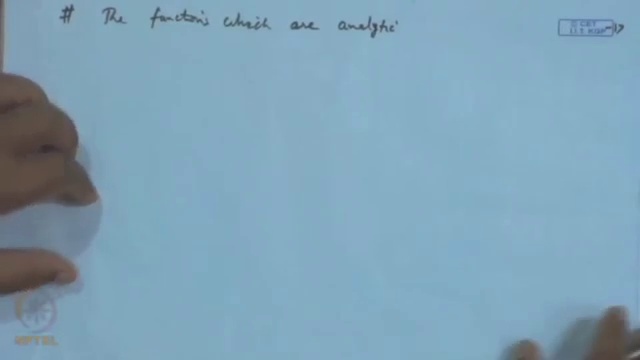 # The functions which are analytic
© CET
I.I.T. KGP
NPTEL